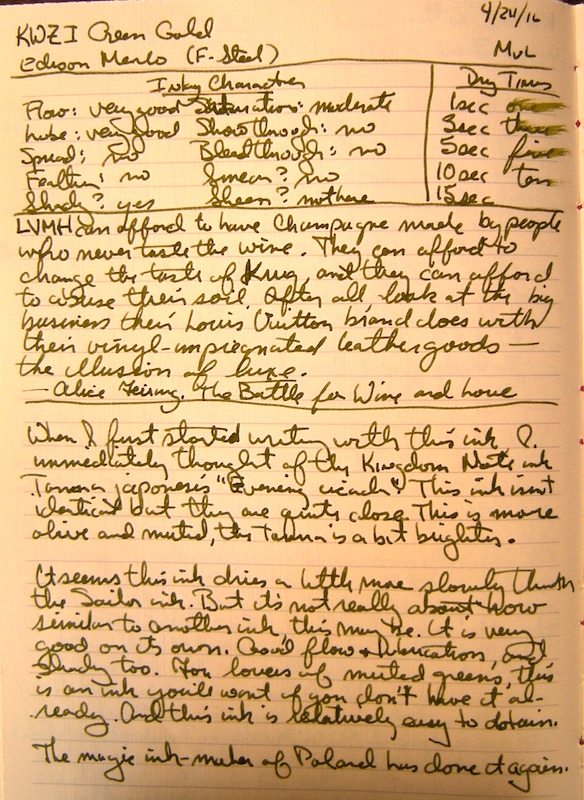 4/24/16
KWZI Green Gold
Edison Menlo (F-Steel)
MvL
Inky Characters
Dry Times
Flow: very good Saturation: moderate
1sec one
Lube: very good Show through: no
3sec three
Spread: no Bleedthrough: no
5sec five
Feather: no Smear? no
10sec ten
Shade? yes Sheen? not here
15sec
LVMH can afford to have Champagne made by people
who never taste the wine. They can afford to
change the taste of Krug, and they can afford
to abuse their soil. After all, look at the big
business their Louis Vuitton brand does with
their vinyl-impregnated leather goods —
the illusion of luxe.
— Alice Feiring, The Battle for Wine and Love
When I first started writing with this ink I
immediately thought of the Kingdom Note ink
Tanna japonesis "Evening cicada". This ink isn't
identical but they are quite close. This is more
olive and muted, the Tanna is a bit brighter.
It seems this ink dries a little more slowly than
the Sailor ink. But it's not really about how
similar to another ink, this may be. It is very
good on its own. Good flow + lubrication, and
shady too. For lovers of muted greens, this
is an ink you'll want if you don't have it al-
ready. And this ink is relatively easy to obtain.
The magic ink-maker of Poland has done it again.